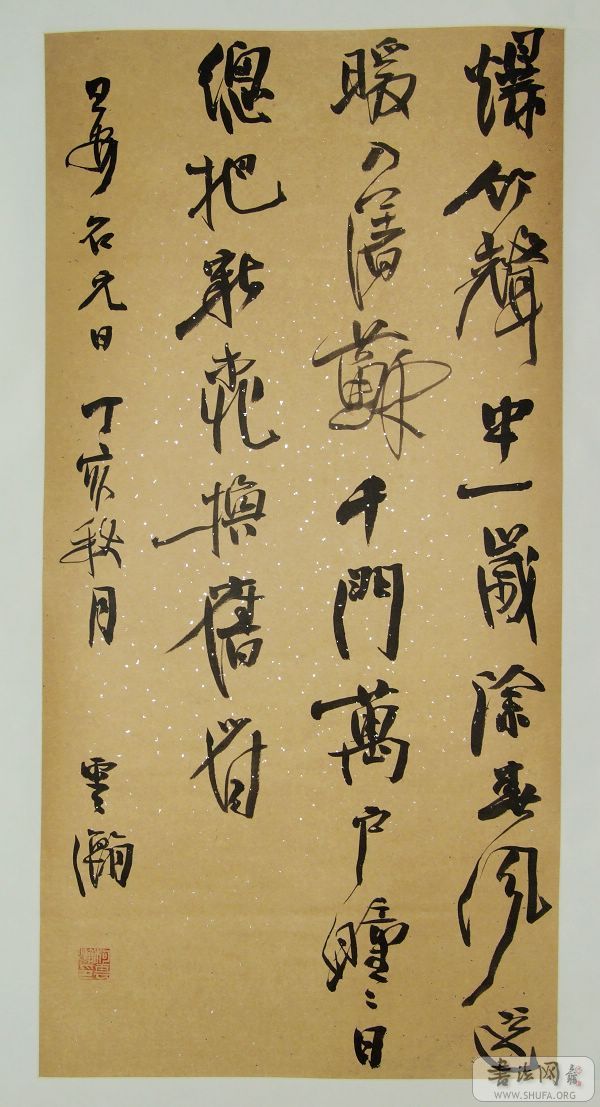 爆竹聲中一歲除春風送
暖入屠蘇千門萬戶瞳〻日
總把新桃換舊符
王安石元日 丁亥秋月 雲瀚
書法网
WWW.SHUFA.ORG